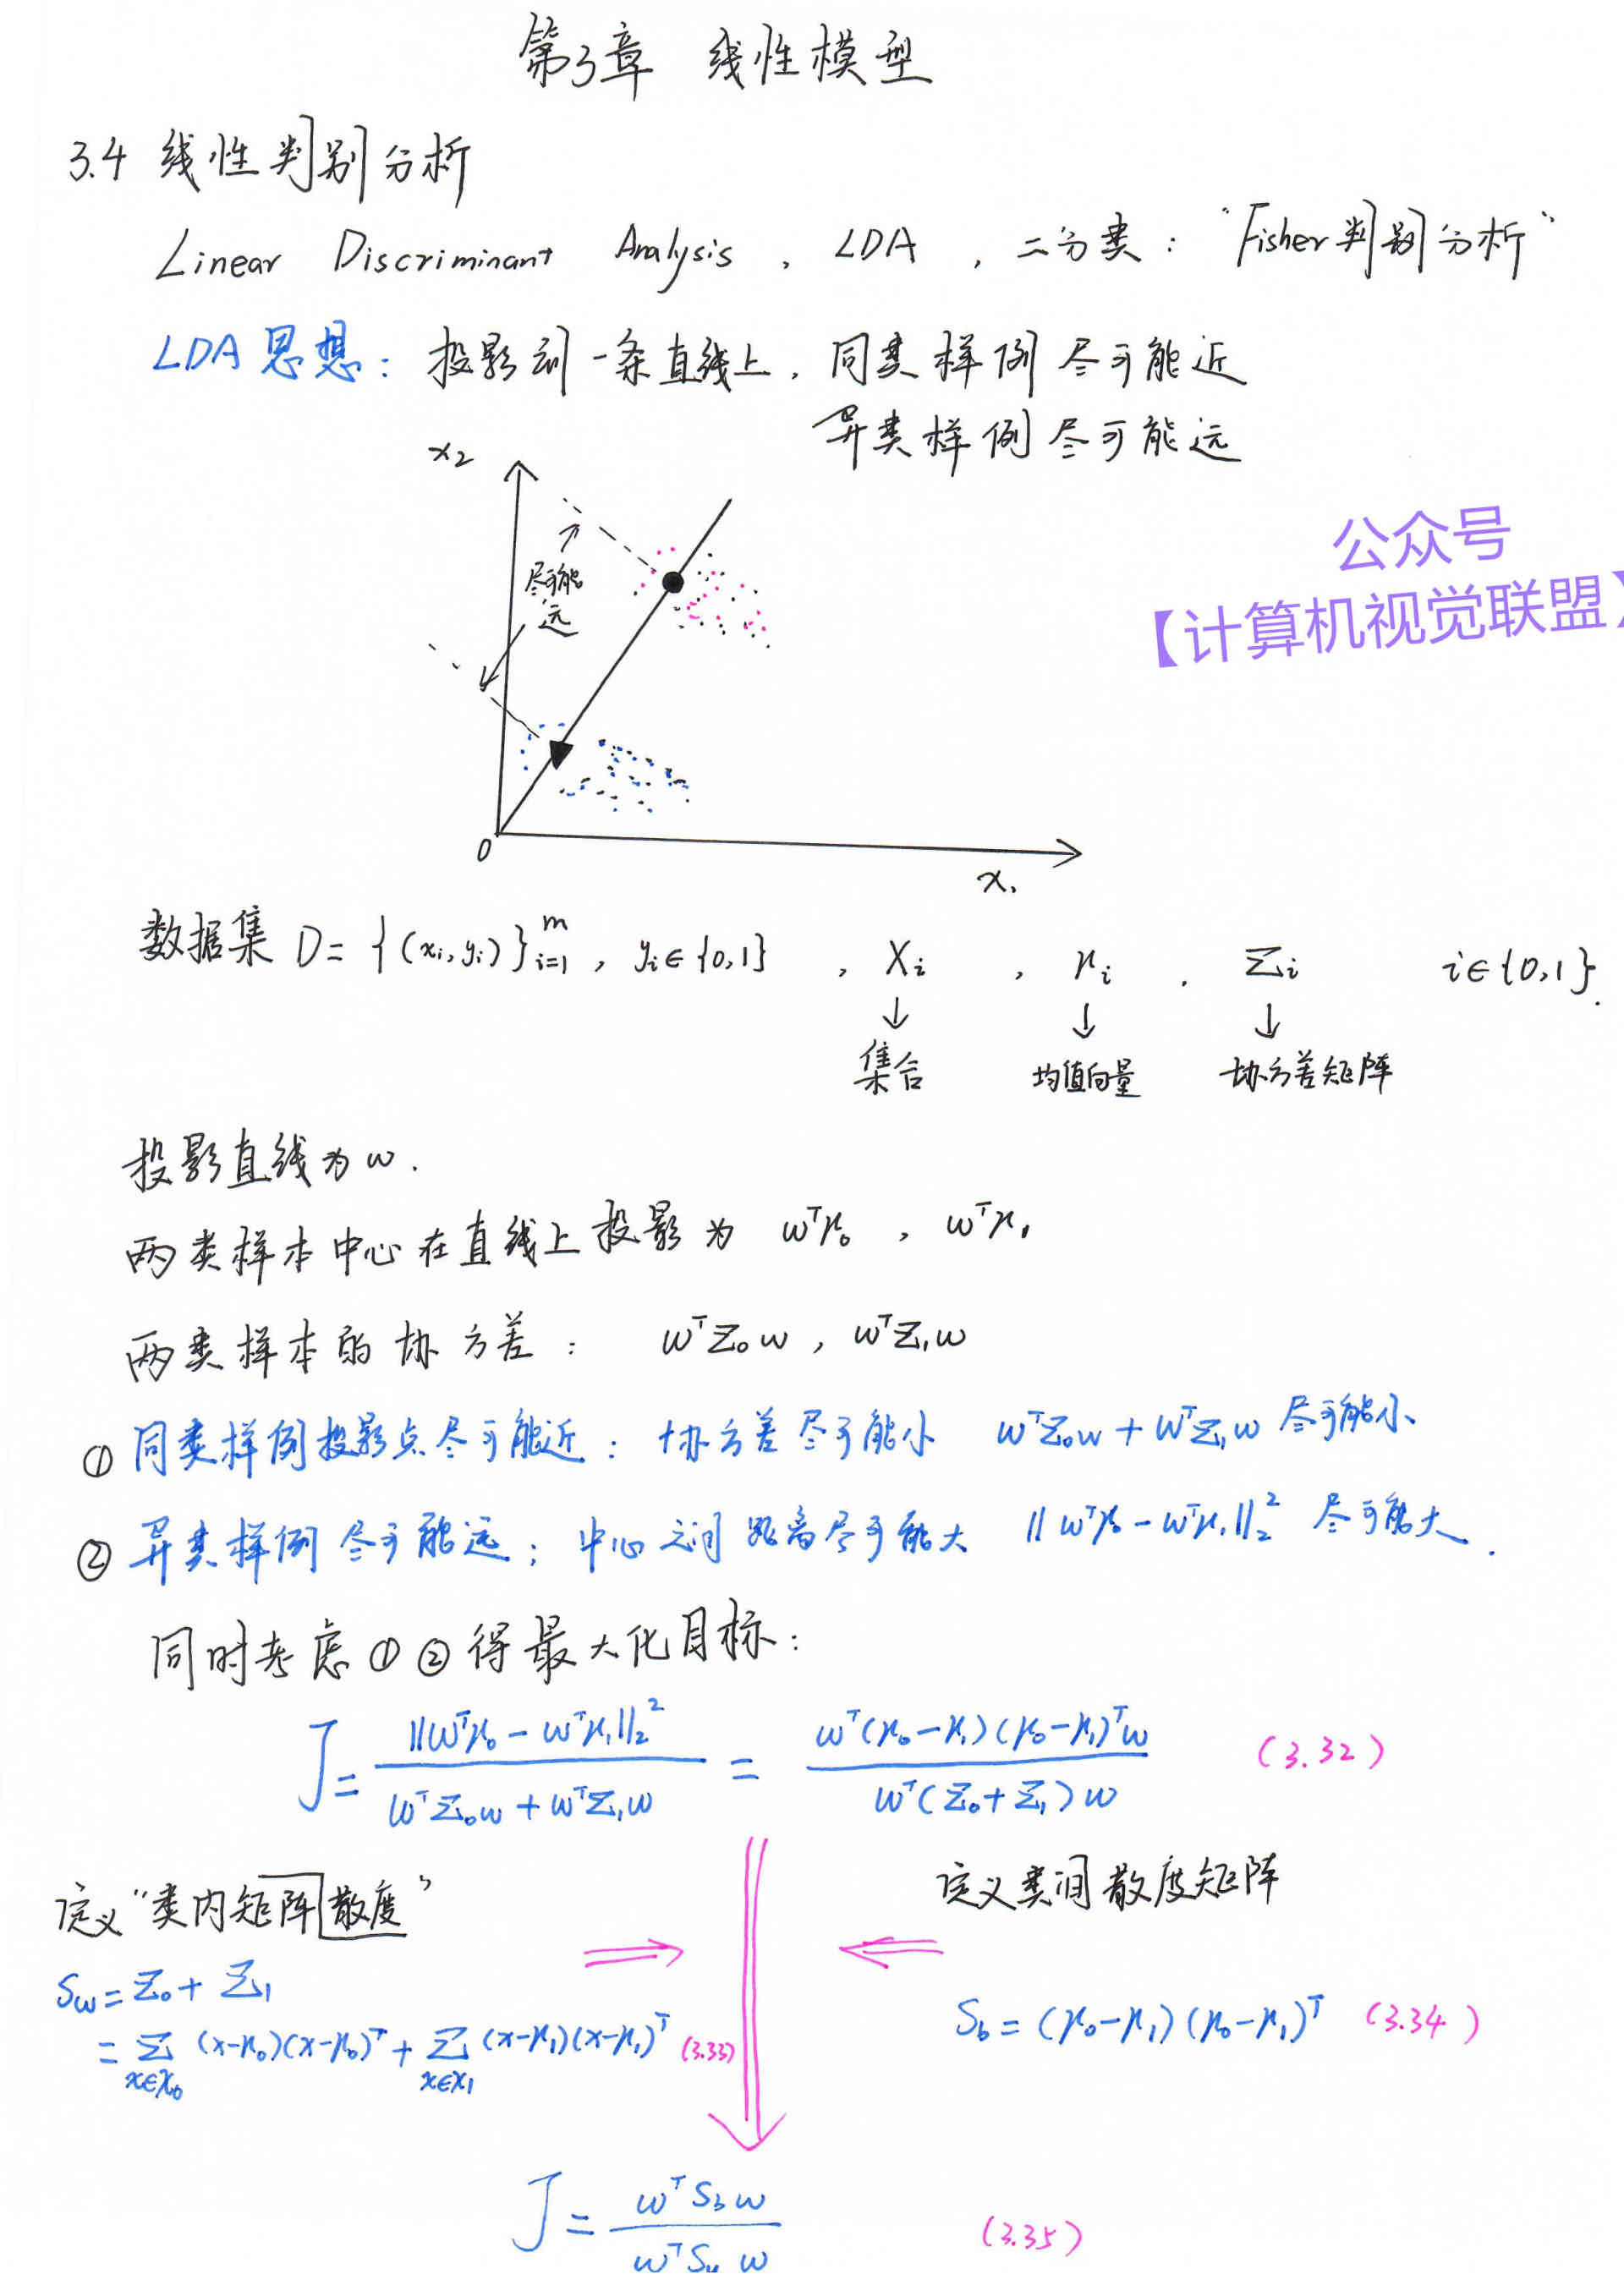 第3章 线性模型
3.4 线性判别分析
Linear Discriminant Analysis , LDA , 二分类: "Fisher判别分析"
LDA思想: 投影到一条直线上, 同类样例尽可能近
异类样例尽可能远
x₂
尽可能
远
公众号
【计算机视觉联盟】
0
x₁
数据集 D = {(xᵢ,yᵢ)}ᵢ₌₁ᵐ , yᵢ∈{0,1} , Xᵢ , μᵢ , Σᵢ i∈{0,1}.
↓ ↓ ↓
集合 均值向量 协方差矩阵
投影直线为w.
两类样本中心在直线上投影为 wᵀμ₀ , wᵀμ₁
两类样本的协方差: wᵀΣ₀w , wᵀΣ₁w
① 同类样例投影点尽可能近: 协方差尽可能小 wᵀΣ₀w + wᵀΣ₁w 尽可能小
② 异类样例尽可能远; 中心之间距离尽可能大 ||wᵀμ₀ - wᵀμ₁||₂² 尽可能大.
同时考虑①②得最大化目标:
J = ||wᵀμ₀ - wᵀμ₁||₂² / (wᵀΣ₀w + wᵀΣ₁w) = wᵀ(μ₀-μ₁)(μ₀-μ₁)ᵀw / wᵀ(Σ₀+Σ₁)w (3.32)
定义"类内矩阵散度"
定义类间散度矩阵
S_w = Σ₀ + Σ₁
= Σ_{x∈X₀} (x-μ₀)(x-μ₀)ᵀ + Σ_{x∈X₁} (x-μ₁)(x-μ₁)ᵀ (3.33)
S_b = (μ₀-μ₁)(μ₀-μ₁)ᵀ (3.34)
J = wᵀS_b w / wᵀS_w w (3.35)